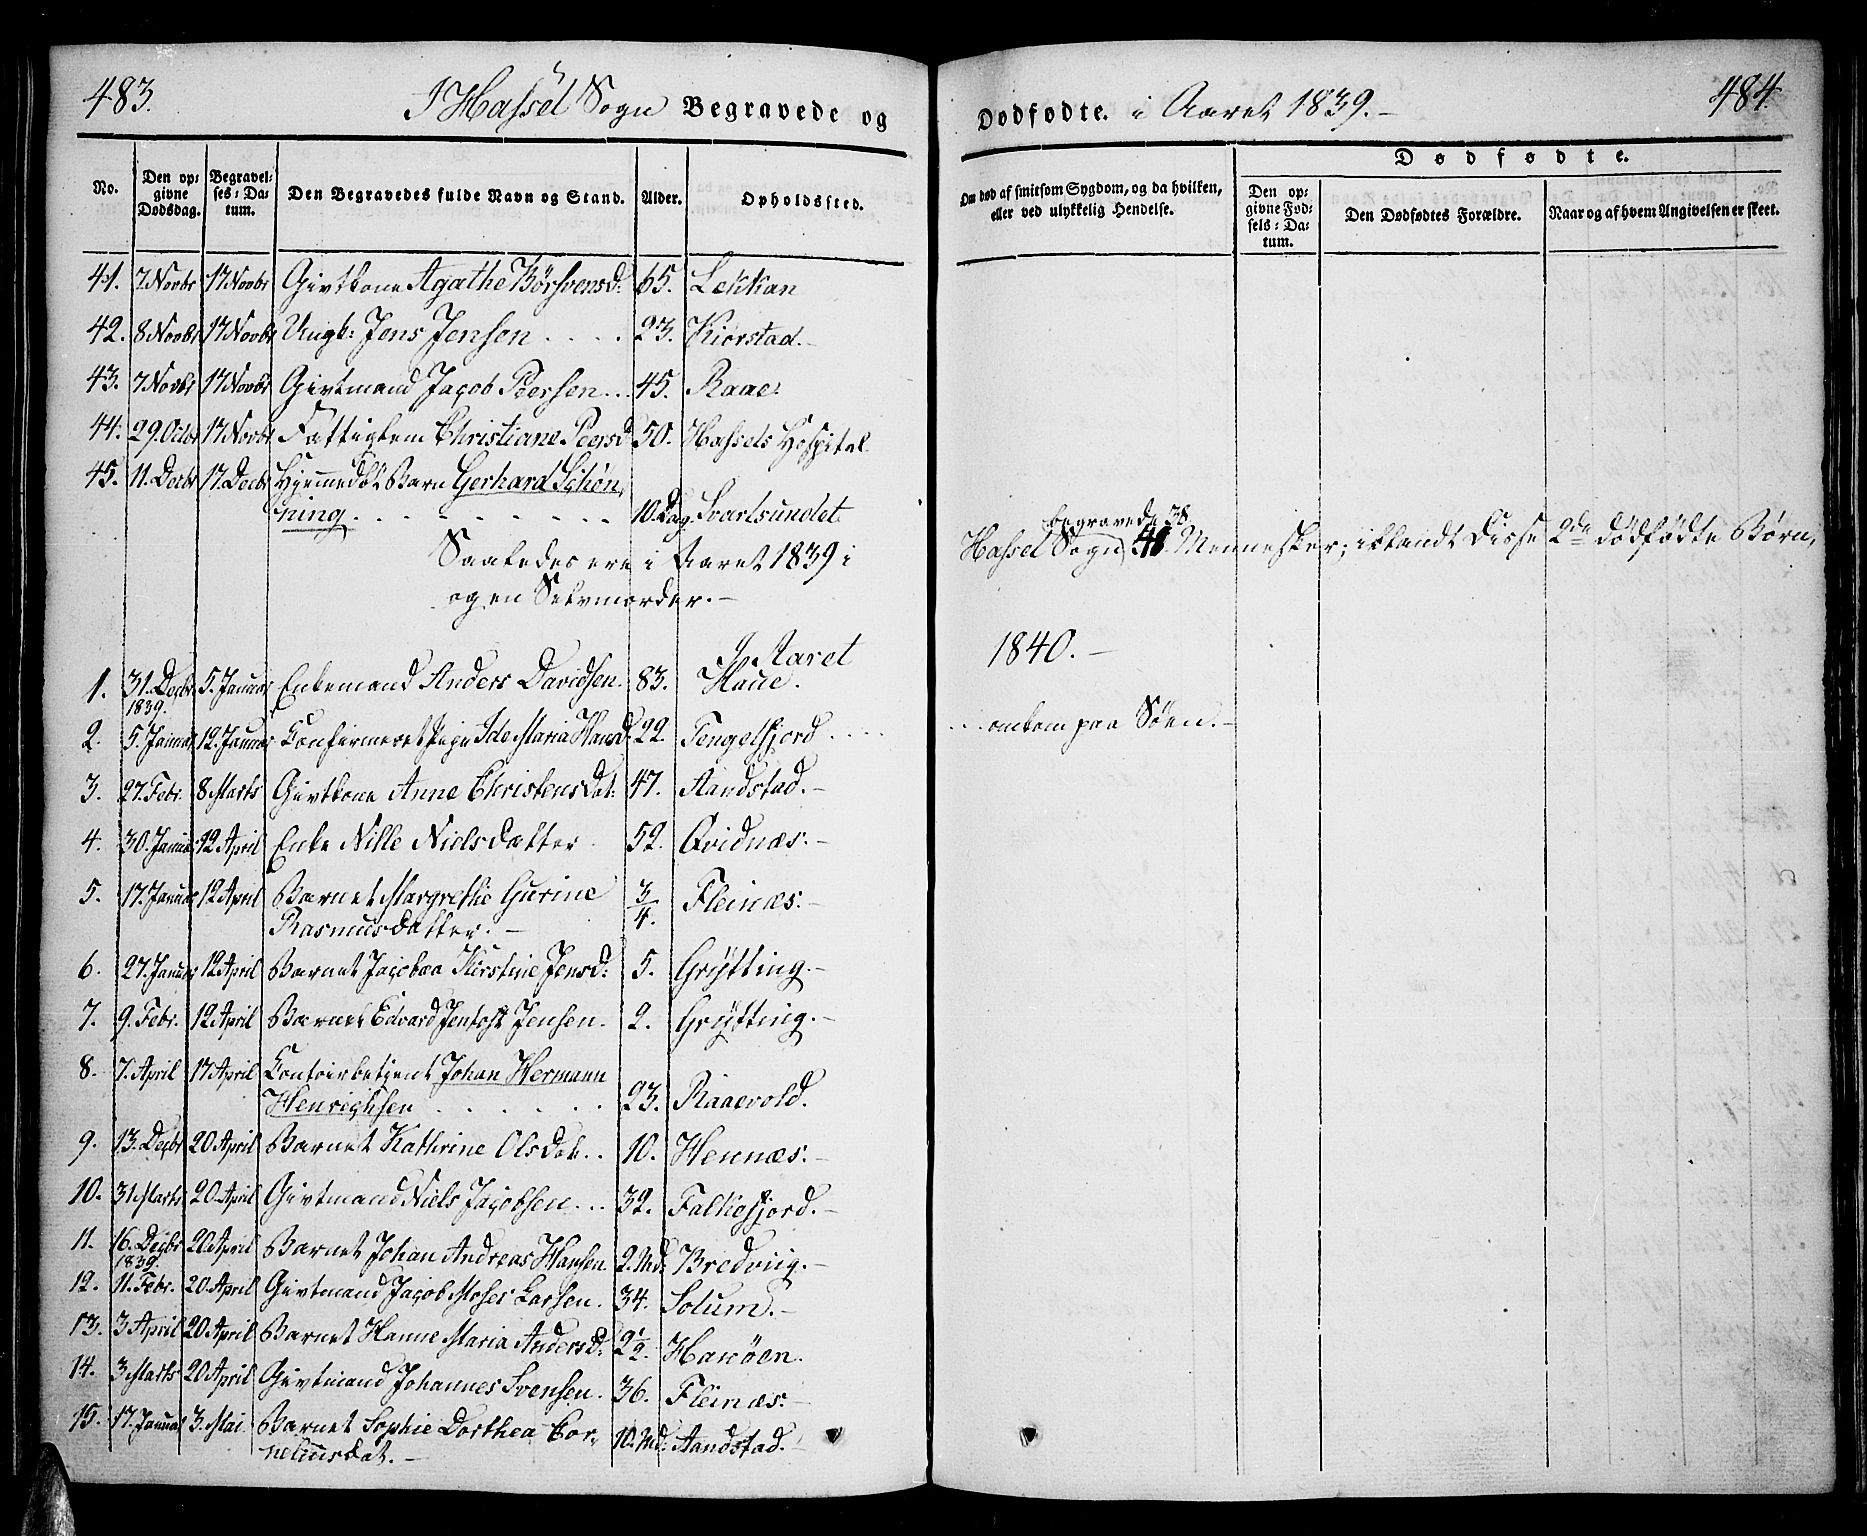 483. I Hassel Sogn Begravede og
Dødfødte. i Aaret 1839.- 484.
No. Den opgivne Dødsdag. Begravelses-Datum. Den Begravedes fulde Navn og Stand. Alder. Opholdssted.
Om død af smitsom Sygdom, og da hvilken, eller ved ulykkelig Hendelse. Dødfødte. Den opgivne Fødsels-Datum. Den Dødfødtes Forældre. Naar og af hvem Angivelsen er skeet.
41. 7 Novbr 17 Novbr Givtkone Agathe Børsvensd: 65. Lekkan
42. 8 Novbr 17 Novbr Ungk: Jens Jensen . . . . 23. Kiørstad.-
43. 7 Novbr 17 Novbr Givtmand Jacob Peersen... 45. Raae.
44. 29. Octbr 17 Novbr Fattiglem Christiane Peersd 50. Hassels Hospital
45. 11. Decbr 17. Decbr Hjemmedøbt Barn Gerhard Schøn,
ning. . . . . . . . . 10. Dag. Svartsundet
Saaledes ere i Aaret 1839 i
begravede 38
Hassel Sogn 41 Mennesker; iblandt Disse 2de dødfødte Børn,
og en Selvmorder.-
I Aaret 1840.-
1. 31. Decbr 1839. 5. Januar Enkemand Anders Davidsen. 83. Haue.
2. 5. Januar 12. Januar Confirmeret Pige Ide Maria Hansd 22. Tengelfjord .... ... omkom paa Søen.-
3. 27. Febr. 8 Marts Givtkone Anne Christensdat: 47. Aandstad.-
4. 30. Januar 12 April Enke Nille Nielsdatter. 52. Qvidnæs.-
5. 17. Januar 12 April Barnet Margrethe Gurine 3/4. Fleinæs.-
Rasmusdatter.-
6. 27. Januar 12 April Barnet Jacobaa Kirstine Jensd: 5. Grytting.-
7. 9. Febr. 12 April Barnet Edvard Jentoft Jensen. 2. Grytting.-
8. 7. April 17 April Contoirbetjent Johan Hermann
Henrichsen . . . . . . 23. Raaevold.
9. 13. Decbr 20 April Barnet Kathrine Olsdat.. 10. Hennæs.-
10. 31 Marts 20. April Givtmand Niels Jacobsen... 32. Falkefjord.-
11. 16. Decbr 1839. 20 April Barnet Johan Andreas Hansen 2. Md: Bredviig.-
12. 11. Febr. 20. April Givtmand Jacob Moses Larsen. 34. Solum.-
13. 3 April 20 April Barnet Hanne Maria Andersd: 2 1/2. Hanøen.
14. 3 Marts 20 April Givtmand Johannes Svensen. 36. Fleinæs.-
15. 17. Januar 3. Mai Barnet Sophie Dorthea Cor,
neliusdat.- 10. Md: Aandstad.-